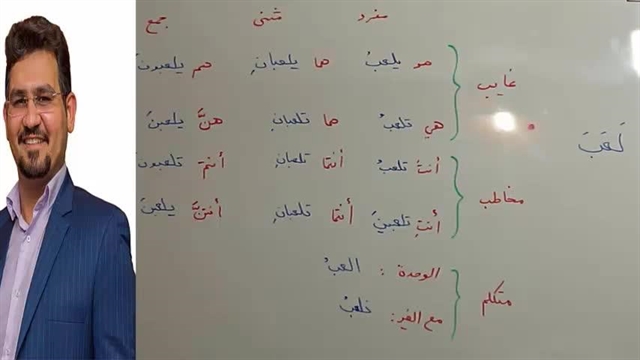 مفرد مثنى جمع
هو يلعبُ هما يلعبانِ هم يلعبونَ
غايب
هي تلعبُ هما تلعبانِ هنَّ يلعبنَ
لَعَبَ
أنتَ تلعبُ أنتما تلعبانِ أنتم تلعبونَ
مخاطب
أنتِ تلعبينَ أنتما تلعبانِ أنتنَّ يلعبنَ
الوحدة : العبُ
متكلم
مع الغير: نلعبُ